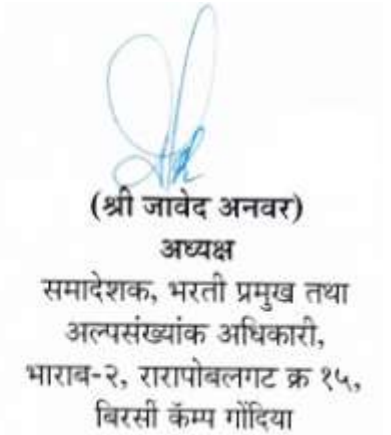 (श्री जावेद अनवर)
अध्यक्ष
समादेशक, भरती प्रमुख तथा
अल्पसंख्यांक अधिकारी,
भाराब-२, रारापोबलगट क्र १५,
बिरसी कॅम्प गोंदिया